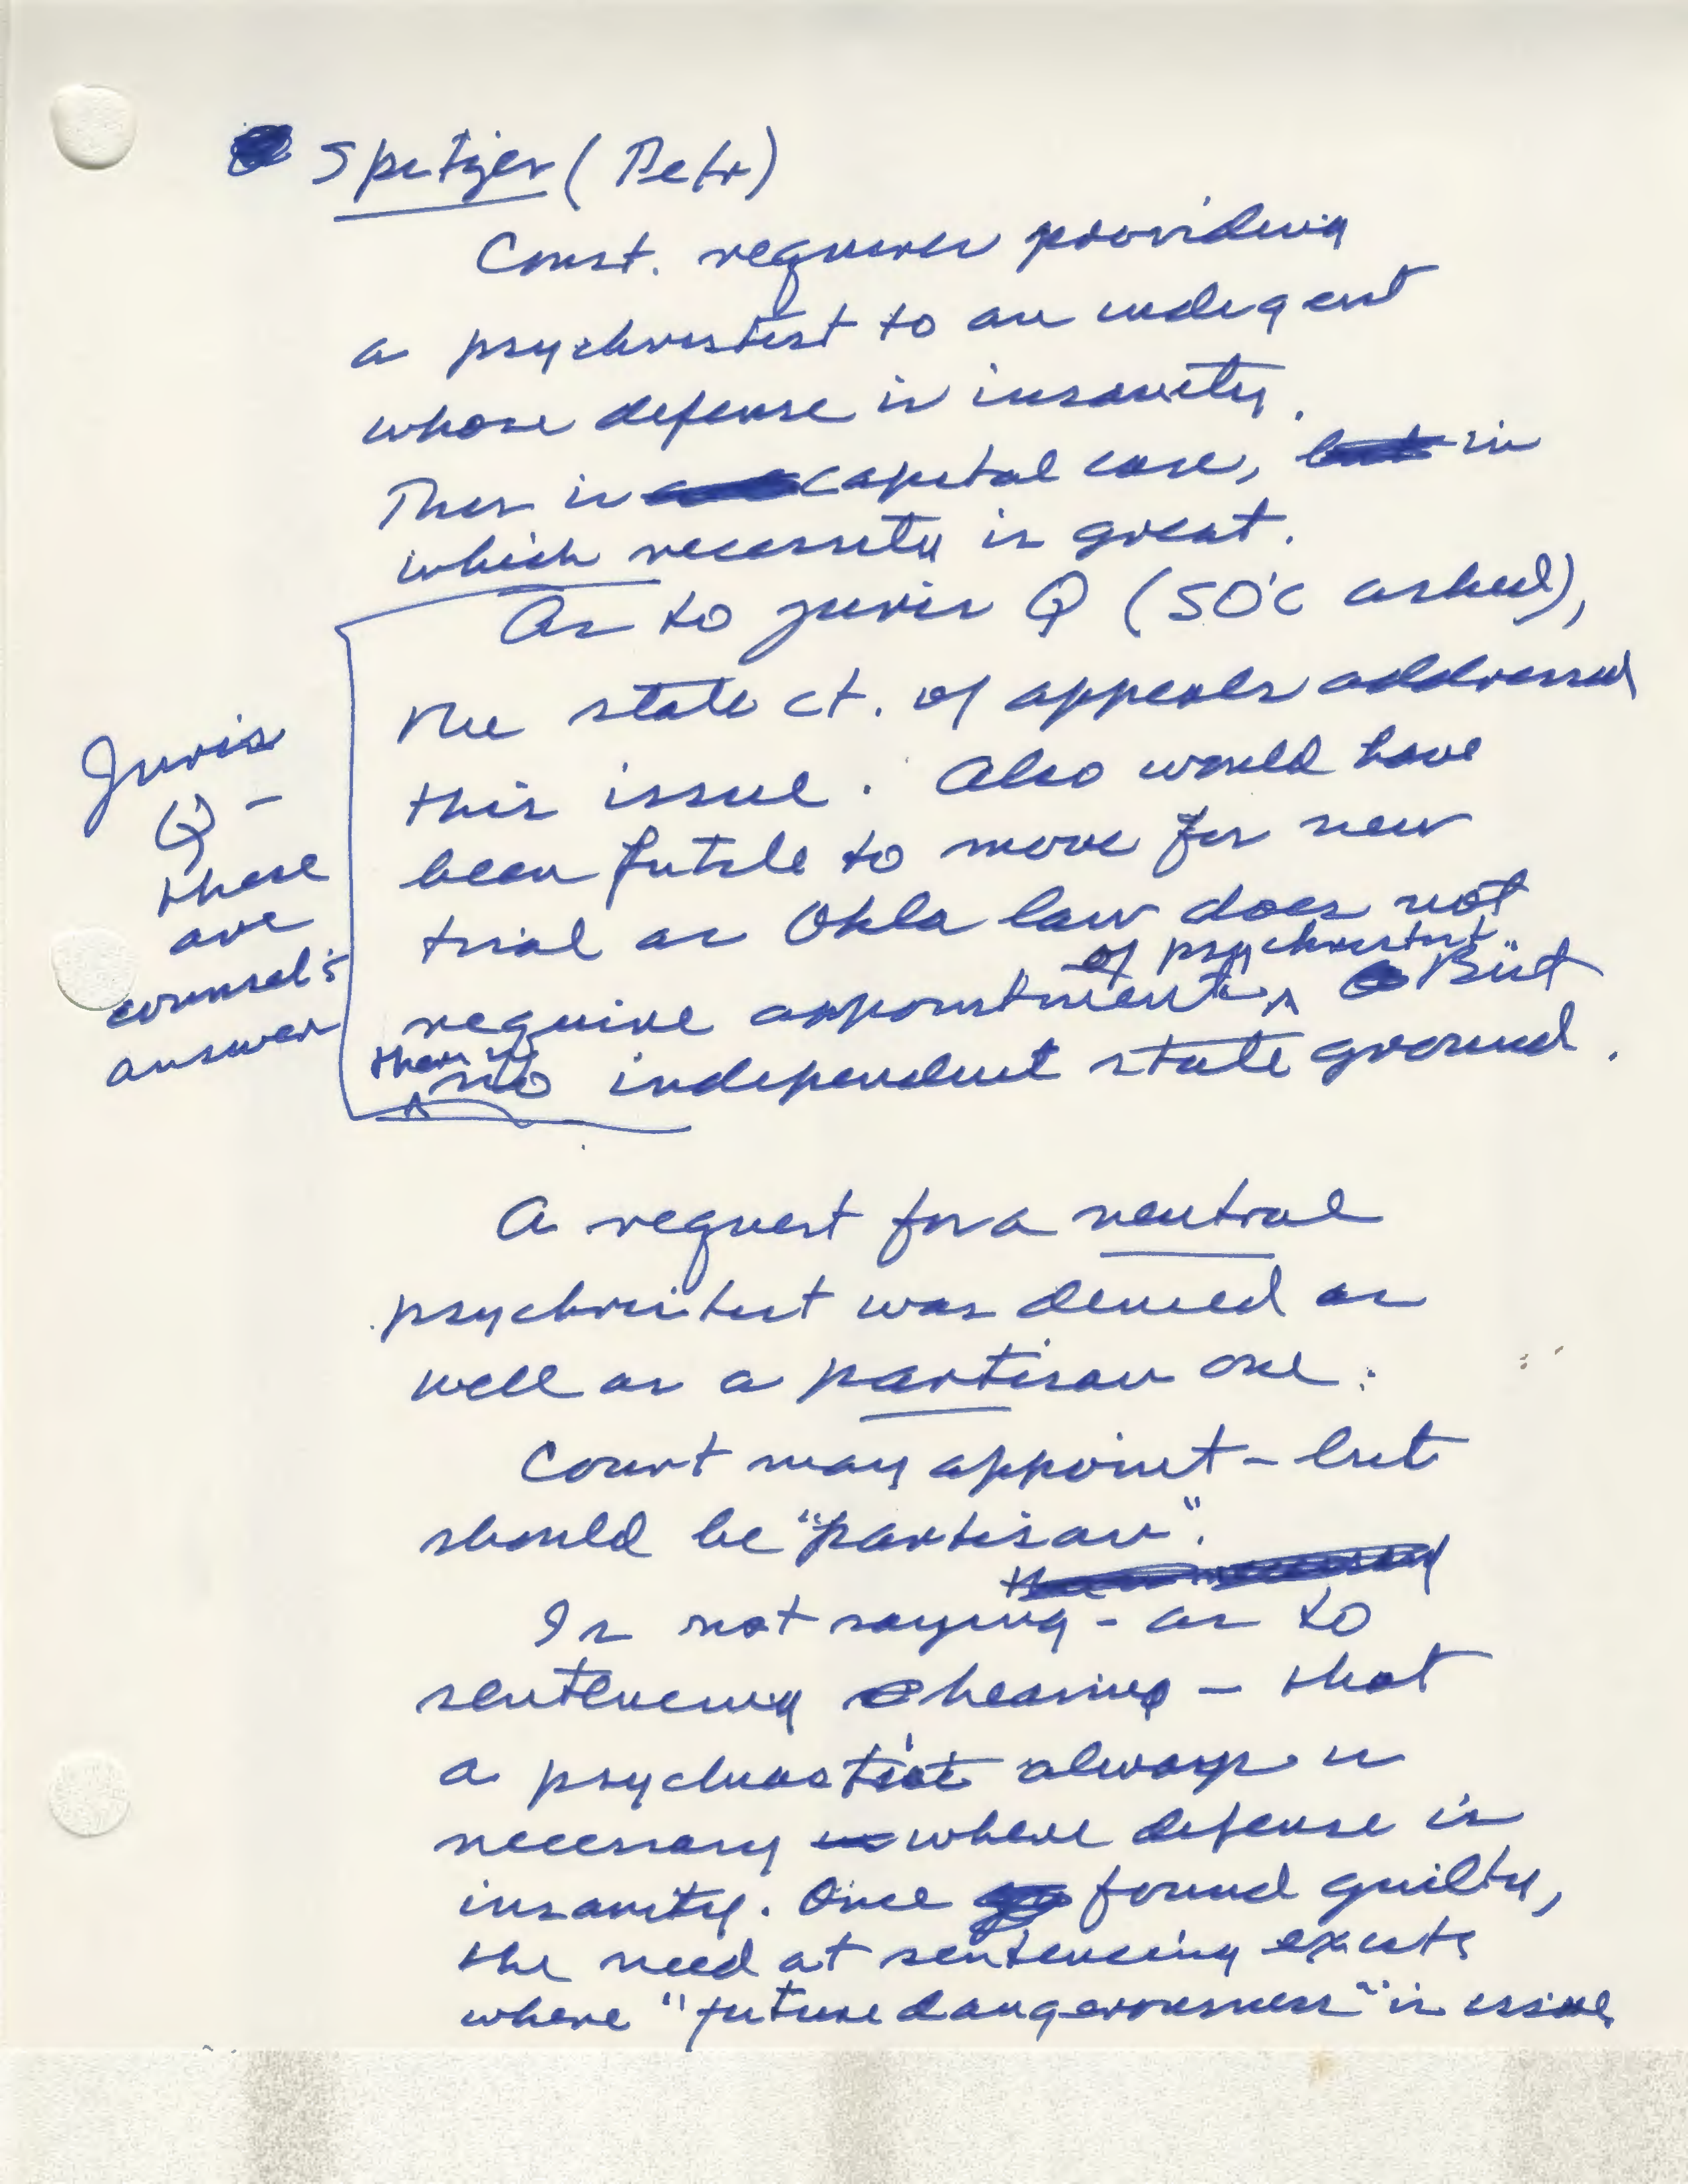 Spitzer (Petr)
Const. requires providing
a psychiatrist to an indigent
whose defense is insanity.
This is capital case, in
which necessity is great.
As to juris Q (SO'C asked),
the state ct. of appeals addressed
this issue. Also would have
been futile to move for new
trial as Okla law does not
require appointment of psychiatrist. But
there is no independent state ground.
Juris
Q -
these
are
counsel's
answer
A request for a neutral
psychiatrist was denied as
well as a partisan one.
Court may appoint - but
should be "partisan".
Is not saying - as to
sentencing hearing - that
a psychiatrist always is
necessary where defense is
insanity. Once found guilty,
the need at sentencing exists
where "future dangerousness" is issue.